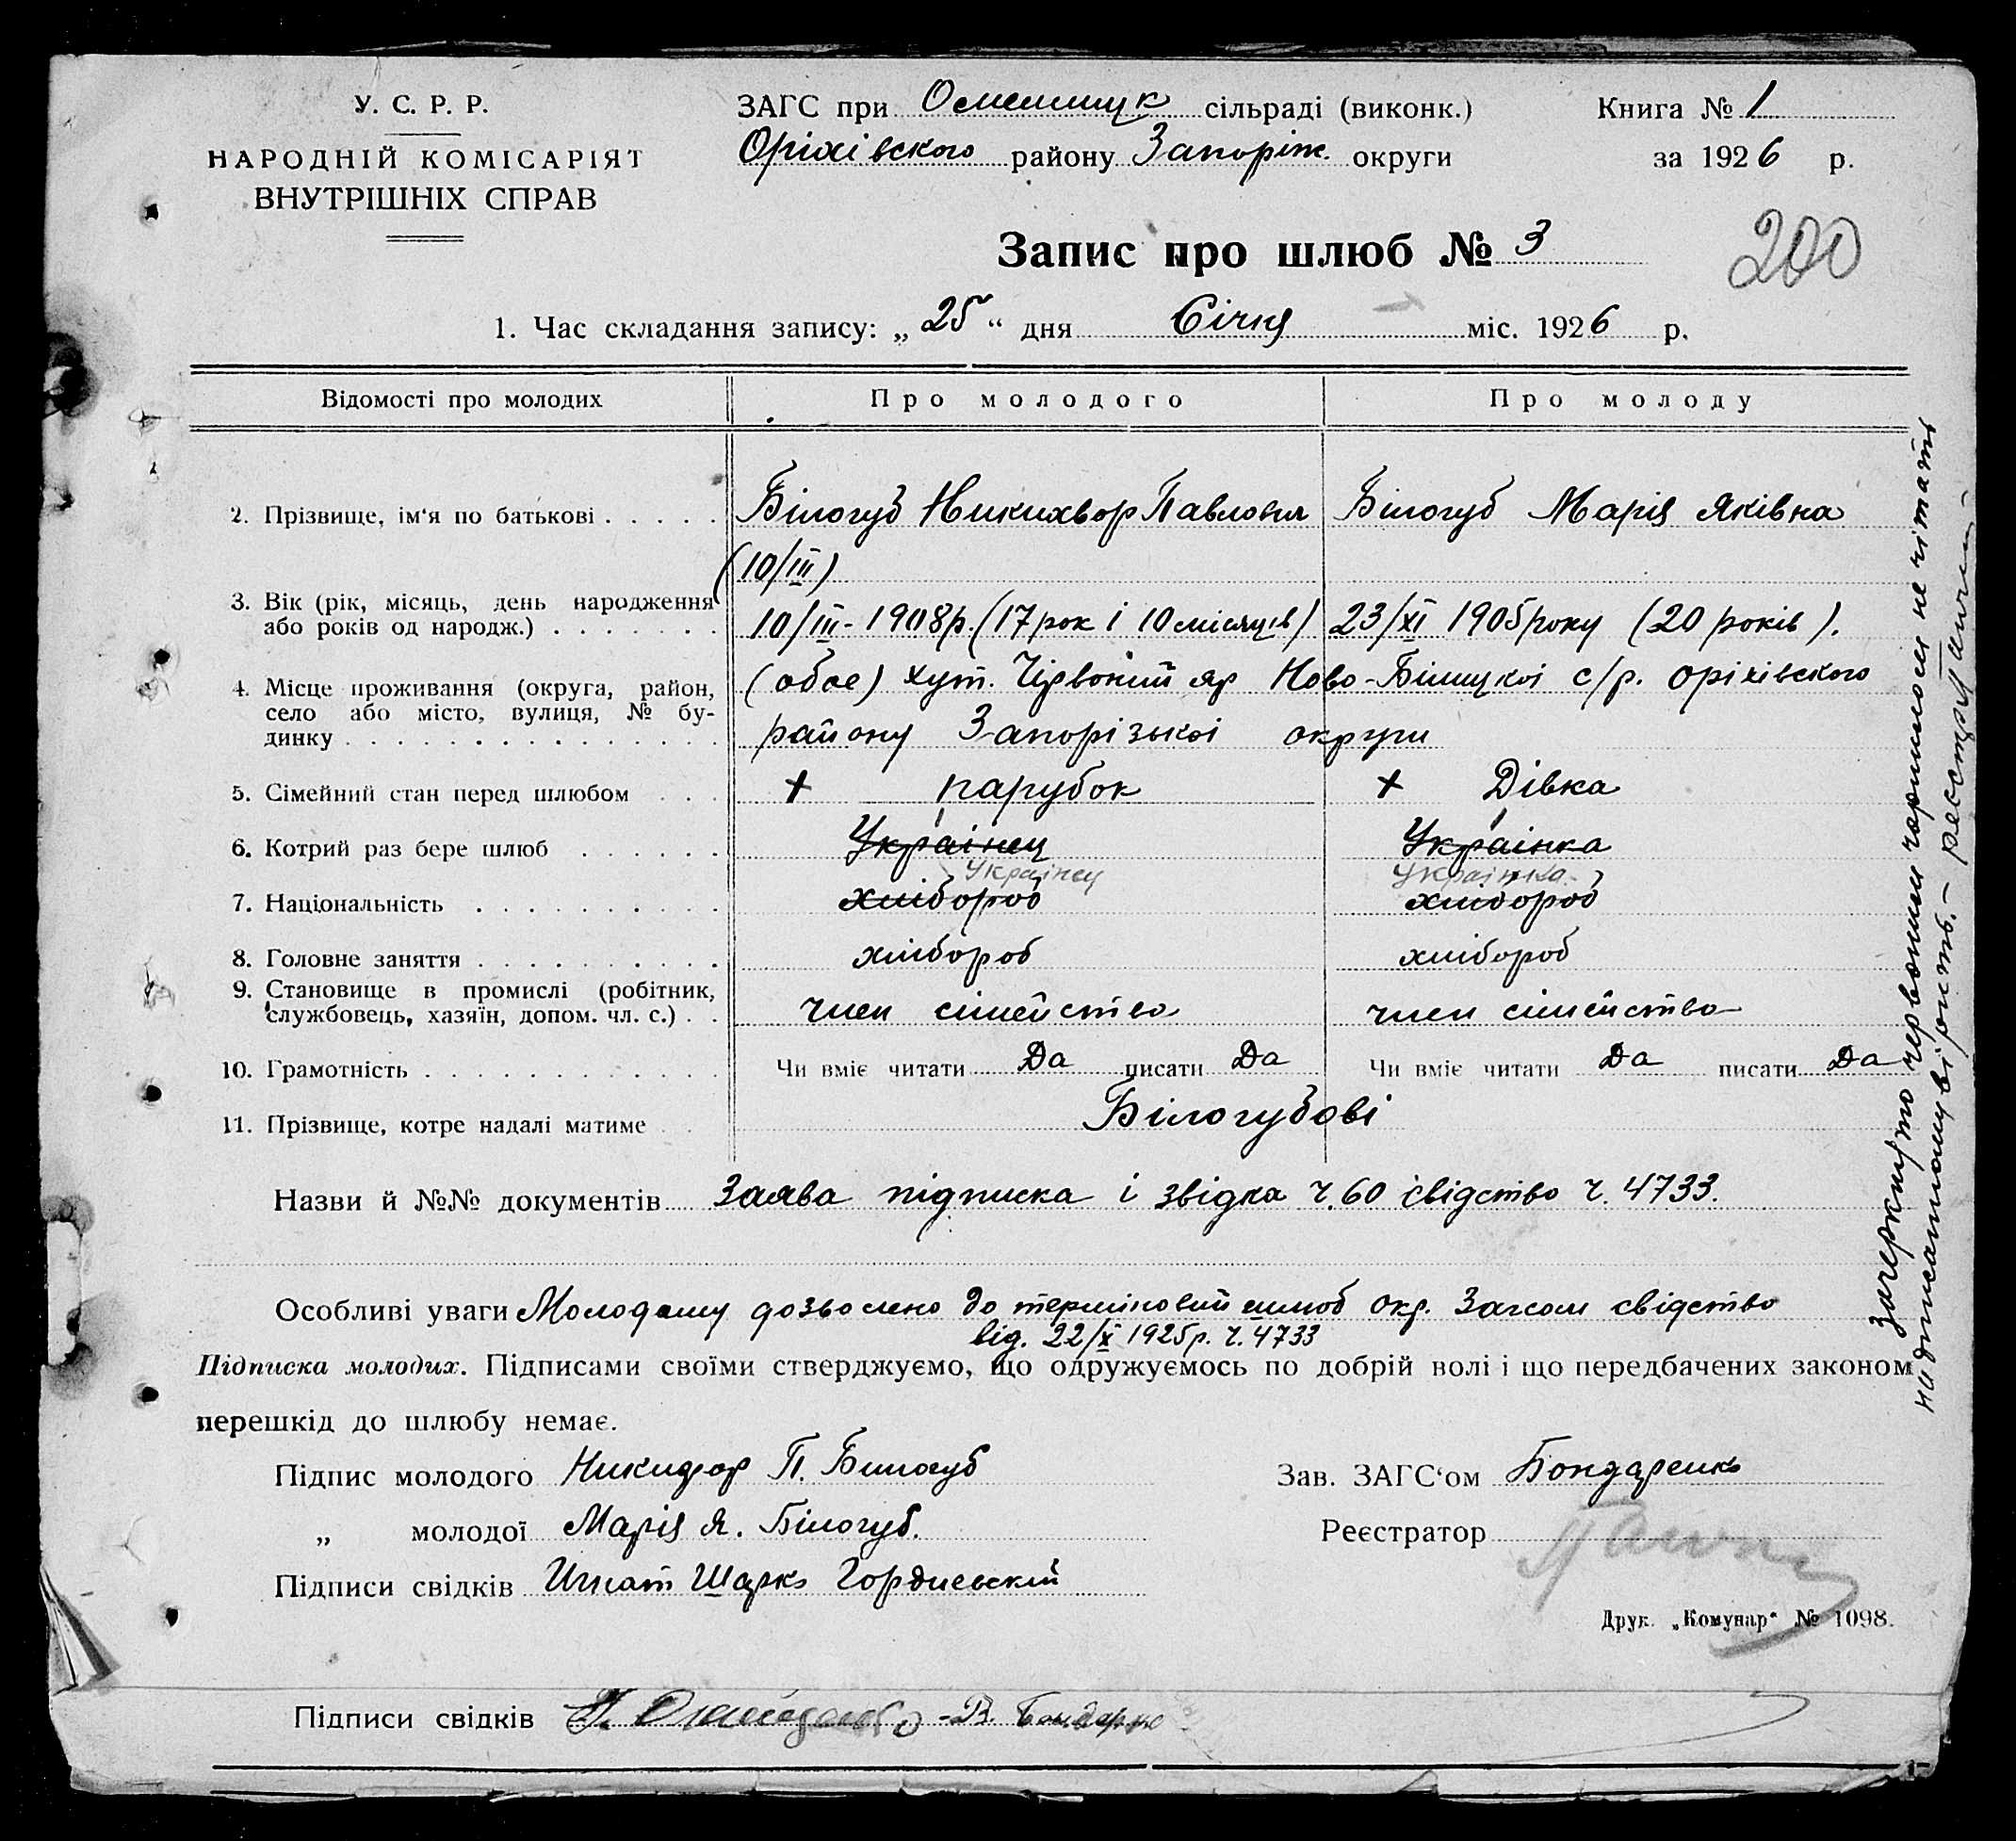 У. С. Р. Р.
НАРОДНІЙ КОМІСАРІЯТ
ВНУТРІШНІХ СПРАВ
ЗАГС при сільраді (виконк.)
Оріхівського району Запоріж. округи
Книга № 1
за 1926 р.
Запис про шлюб № 3
200
1. Час складання запису: „ 25 “ дня Січня міс. 1926 р.
Відомості про молодих Про молодого Про молоду
2. Прізвище, ім'я по батькові . . . . . Білогуб Никихвор Павлович Білогуб Марія Яківна
(10/III)
3. Вік (рік, місяць, день народження
або років од народж.) . . . . . . . 10/III - 1908р. (17 рок і 10 місяців) 23/XI 1905 року (20 років).
4. Місце проживання (округа, район,
село або місто, вулиця, № бу-
динку . . . . . . . . . . . . . . .
(обоє) хут. Червоний яр Ново- с/р. оріхівского
району Запорізької округи
5. Сімейний стан перед шлюбом . . . + парубок + Дівка
6. Котрий раз бере шлюб . . . . . . Українец Українка
Українец Українка
7. Національність . . . . . . . . . . хлібороб хлібороб
8. Головне заняття . . . . . . . . . . хлібороб хлібороб
9. Становище в промислі (робітник,
службовець, хазяїн, допом. чл. с.) . . член сімейства член сімейства
10. Грамотність . . . . . . . . . . . . Чи вміє читати Да писати Да Чи вміє читати Да писати Да
11. Прізвище, котре надалі матиме . . Білогубові
Назви й №№ документів Заява підписка і звідка ч. 60 свідство ч. 4733.
Особливі уваги Молодому дозволено до терміновий шлюб окр. Загсом свідство
від. 22/X 1925р. ч. 4733
Підписка молодих. Підписами своїми стверджуємо, що одружуємось по добрій волі і що передбачених законом
перешкід до шлюбу немає.
Підпис молодого Никифор П. Билогуб
„ молодої Марія Я. Білогуб.
Підписи свідків Игнат Шарко Гордиевский
Зав. ЗАГС‘ом Бондаренко
Реєстратор
Друк. „Комунар“ № 1098.
Підписи свідків
Зачеркнуто червоним чорнилом не чітать
надписанному вірить. - реєстр.